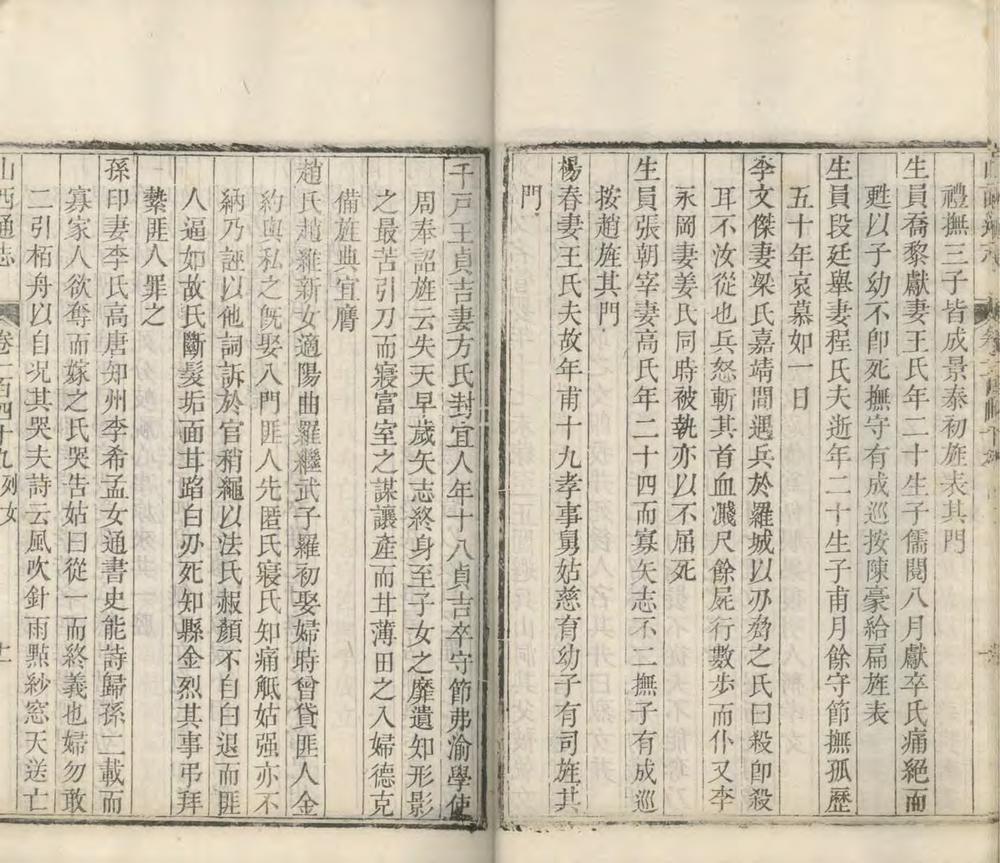 禮撫三子皆成景泰初旌表其門
生員喬黎獻妻王氏年二十生子儒閱八月獻卒氏痛絕而
甦以子幼不卽死撫守有成巡按陳豪給扁旌表
生員段廷舉妻程氏夫逝年二十生子甫月餘守節撫孤歷
五十年哀慕如一日
李文傑妻梁氏嘉靖間遇兵於羅城以刃脅之氏曰殺卽殺
耳不汝從也兵怒斬其首血濺尺餘屍行數步而仆又李
永岡妻姜氏同時被執亦以不屈死
生員張朝宰妻高氏年二十四而寡矢志不二撫子有成巡
按趙旌其門
楊春妻王氏夫故年甫十九孝事舅姑慈育幼子有司旌其
門
千戸王貞吉妻方氏封宜人年十八貞吉卒守節弗渝學使
周奉詔旌云失天早歲矢志終身至子女之靡遺知形影
之最苦引刀而寢富室之謀讓產而甘薄田之入婦德克
備旌典宜膺
趙氏趙維新女適陽曲羅繼武子羅初娶婦時曾貸匪人金
約與私之旣娶入門匪人先匿氏寢氏知痛觝姑强亦不
納乃誣以他詞訴於官稍繩以法氏赧顏不自白退而匪
人逼如故氏斷髮垢面甘蹈白刃死知縣金烈其事弔拜
縶匪人罪之
孫印妻李氏高唐知州李希孟女通書史能詩歸孫二載而
寡家人欲奪而嫁之氏哭告姑曰從一而終義也婦勿敢
二引栢舟以自况其哭夫詩云風吹針雨㸃紗窓天送亡
山西通志 卷一百四十九 列女 十一